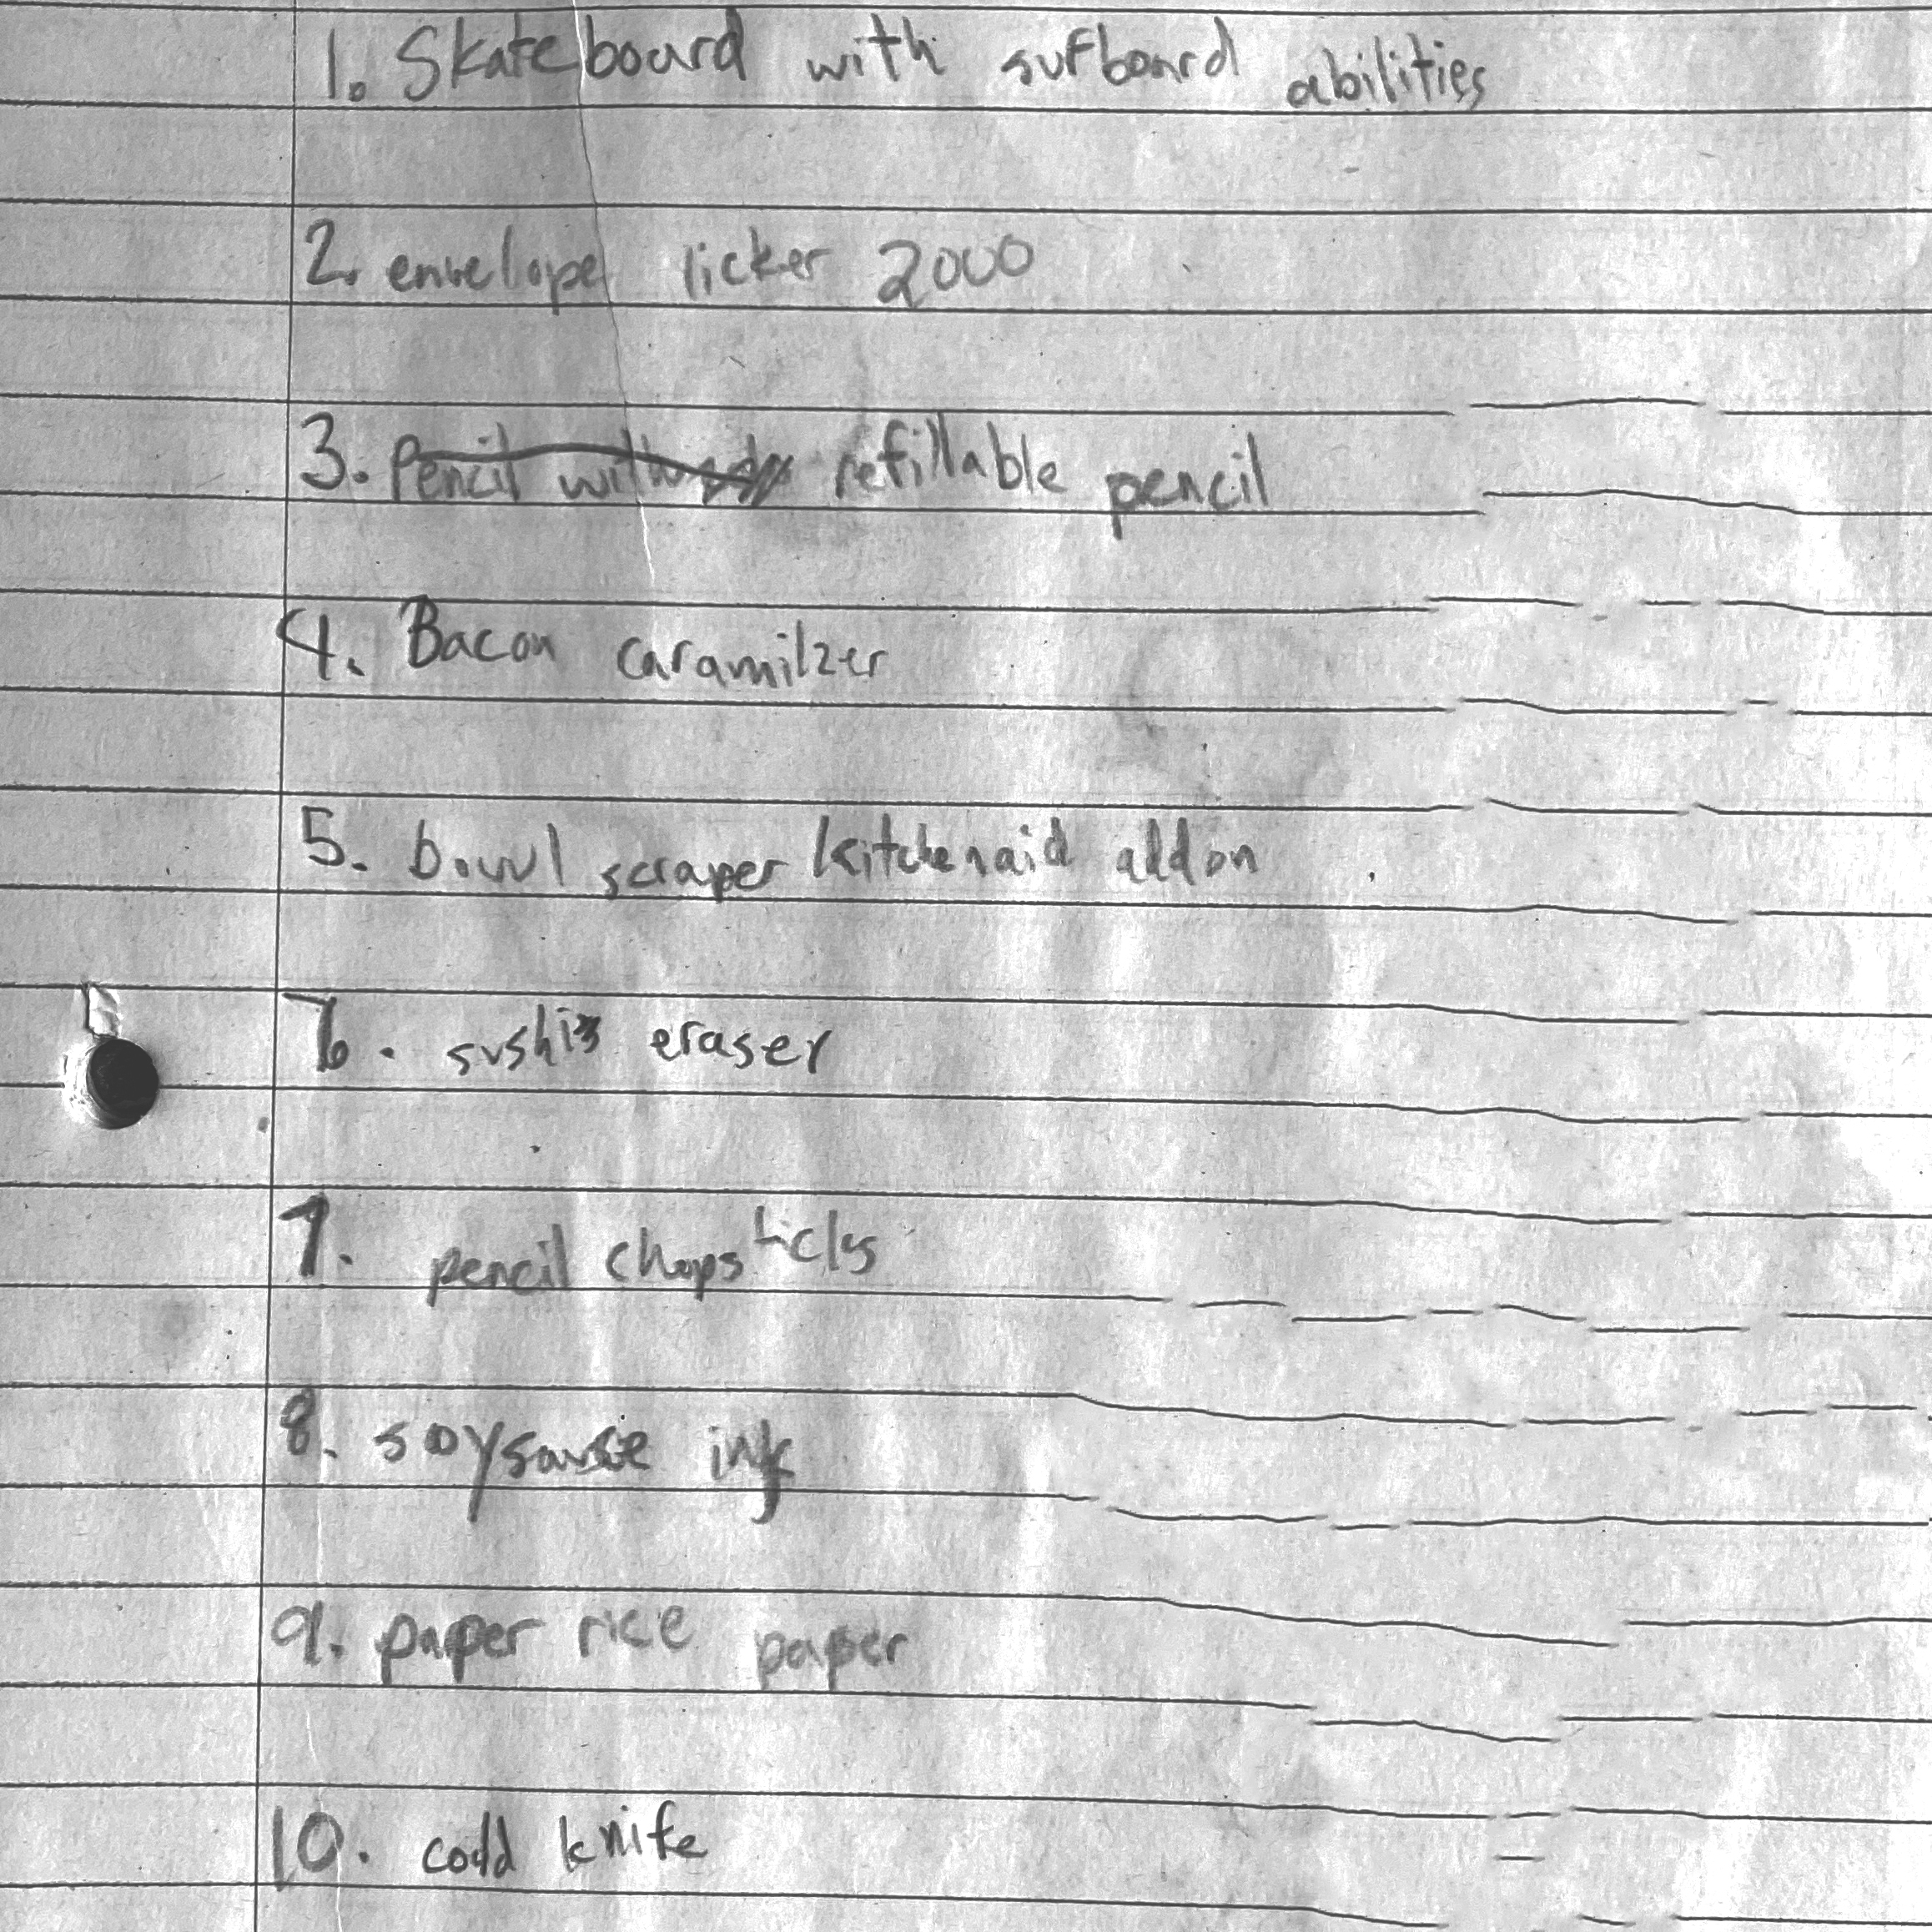 1. Skateboard with surfboard abilities
2. envelope licker 2000
3. ~~Pencil with~~ refillable pencil
4. Bacon caramilzer
5. bowl scraper kitchenaid addon
6. sushi eraser
7. pencil chopsticks
8. soysauce ink
9. paper rice paper
10. codd knife